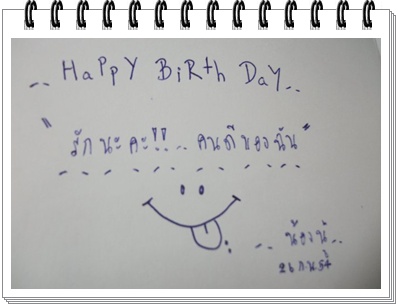 .. HaPPY BiRth DaY..
"รักนะคะ!!... คนดีของฉัน"
.. น้องนุ้..